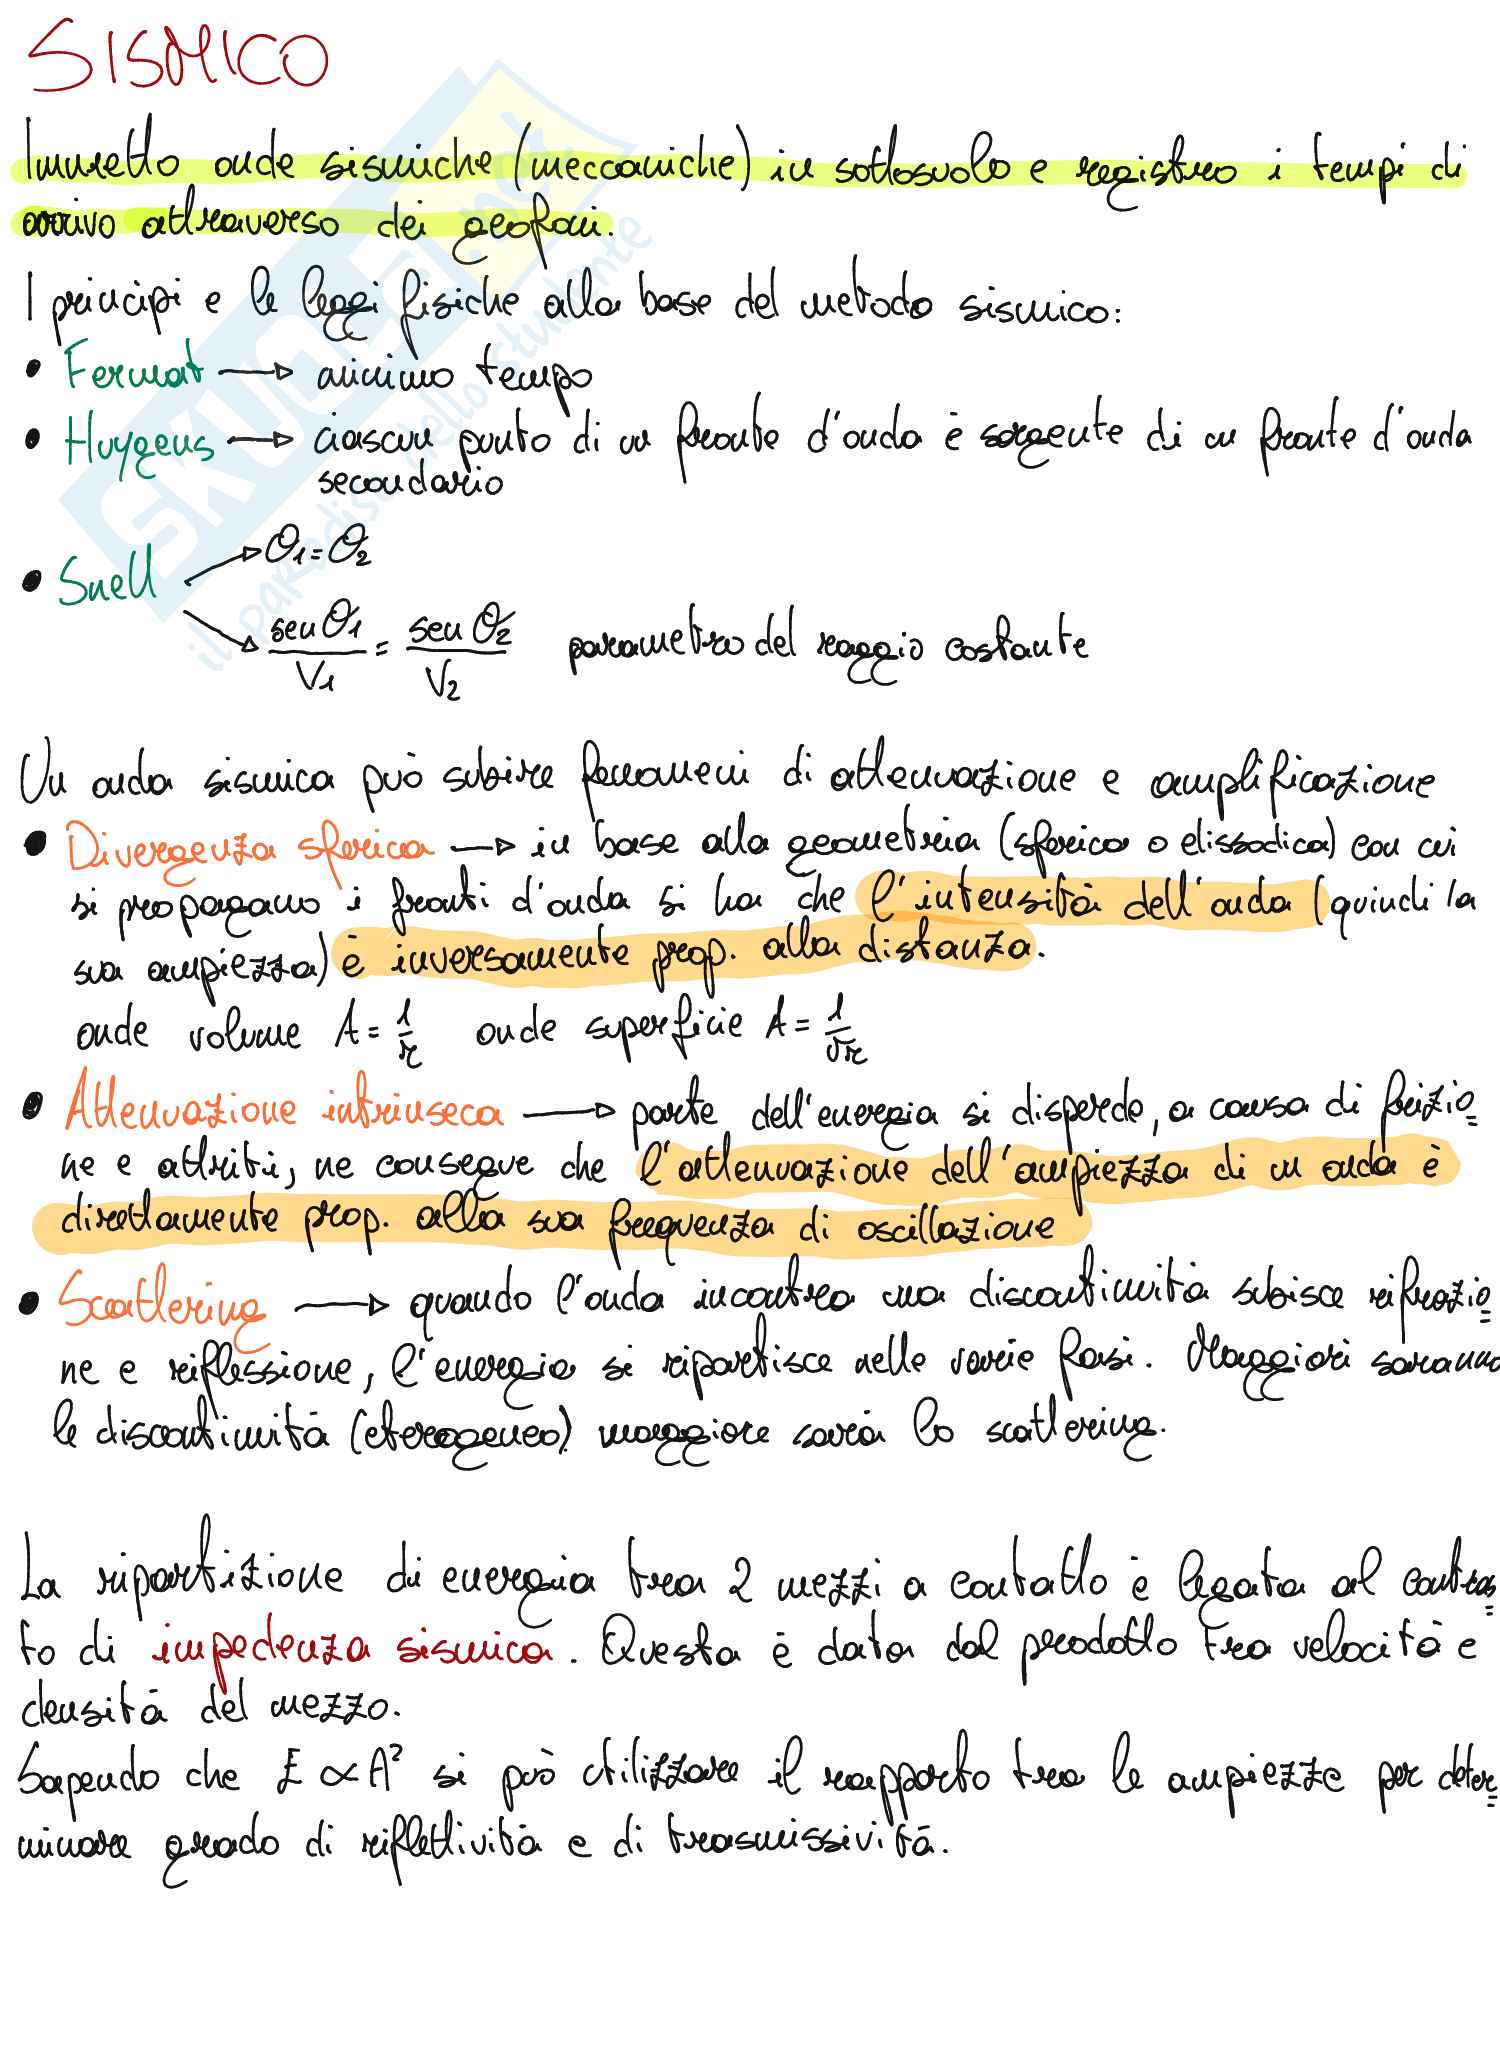 SISMICO
Immetto onde sismiche (meccaniche) in sottosuolo e registro i tempi di
arrivo attraverso dei geofoni.
I principi e le leggi fisiche alla base del metodo sismico:
• Fermat → minimo tempo
• Huygens → ciascun punto di un fronte d'onda è sorgente di un fronte d'onda
secondario
• Snell → θ₁ = θ₂
→ sen θ₁ / V₁ = sen θ₂ / V₂ parametro del raggio costante
Un onda sismica può subire fenomeni di attenuazione e amplificazione
• Divergenza sferica → in base alla geometria (sferica o elissodica) con cui
si propagano i fronti d'onda si ha che l'intensità dell'onda (quindi la
sua ampiezza) è inversamente prop. alla distanza.
onde volume A = 1/r onde superficie A = 1/√r
• Attenuazione intrinseca → parte dell'energia si disperde, a causa di frizio
ne e attriti, ne consegue che l'attenuazione dell'ampiezza di un onda è
direttamente prop. alla sua frequenza di oscillazione
• Scattering → quando l'onda incontra una discontinuità subisce rifrazio
ne e riflessione, l'energia si ripartisce nelle varie fasi. Maggiori saranno
le discontinuità (eterogeneo) maggiore sarà lo scattering.
La ripartizione di energia tra 2 mezzi a contatto è legata al contras
to di impedenza sismica. Questa è data dal prodotto tra velocità e
densità del mezzo.
Sapendo che E ∝ A² si può utilizzare il rapporto tra le ampiezze per deter
minare grado di riflettività e di trasmissività.
SKUOLA.net
il paradiso dello studente